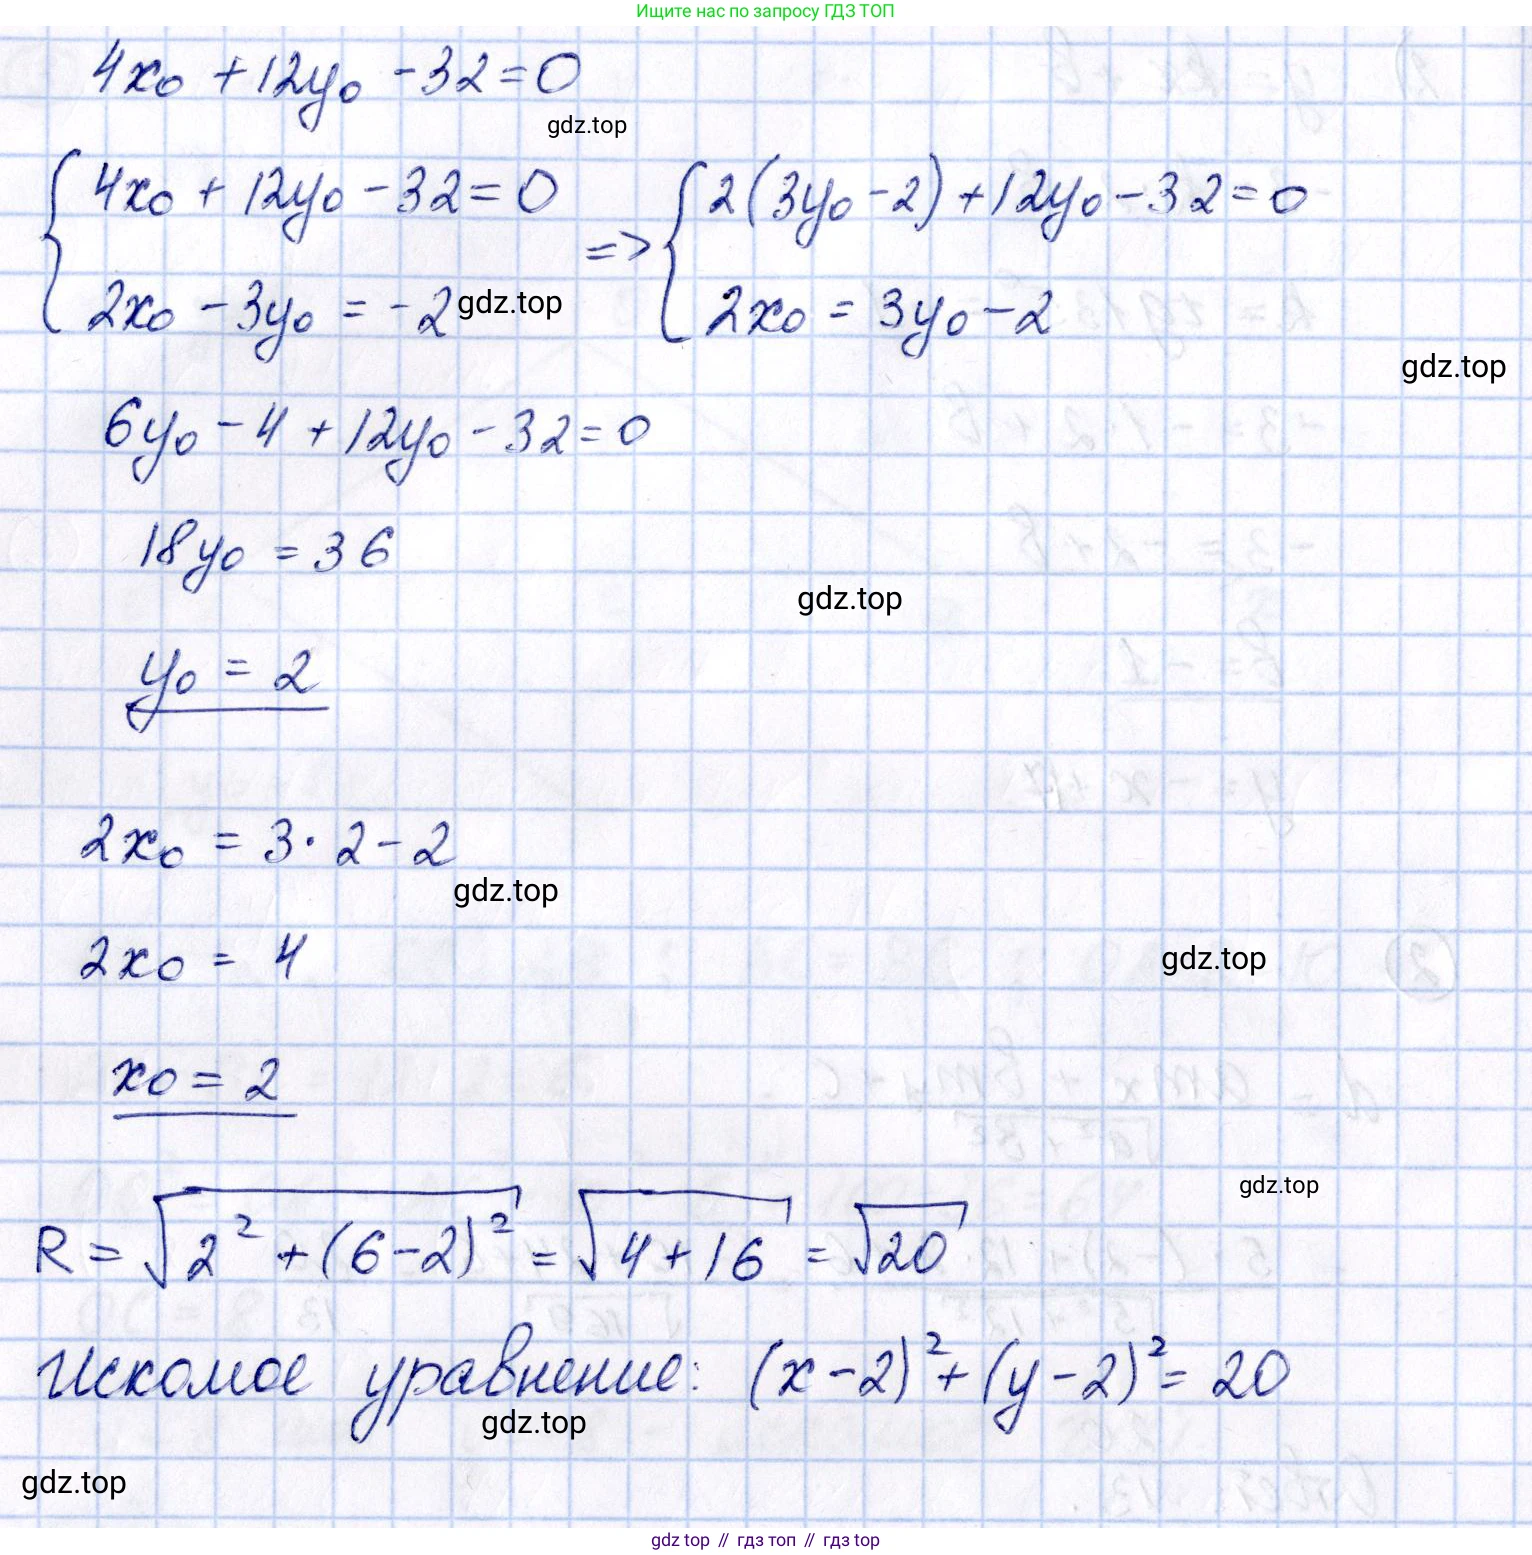 Ищите нас по запросу ГДЗ ТОП
4x₀ + 12y₀ - 32 = 0
gdz.top
{ 4x₀ + 12y₀ - 32 = 0 => { 2(3y₀ - 2) + 12y₀ - 32 = 0
2x₀ - 3y₀ = -2 gdz.top 2x₀ = 3y₀ - 2
gdz.top
6y₀ - 4 + 12y₀ - 32 = 0
18y₀ = 36
gdz.top
y₀ = 2
2x₀ = 3 · 2 - 2
gdz.top
2x₀ = 4
gdz.top
x₀ = 2
gdz.top
R = √(2² + (6-2)²) = √(4+16) = √20
Искомое уравнение: (x-2)² + (y-2)² = 20
gdz.top
gdz.top
gdz top // гдз топ // гдз top